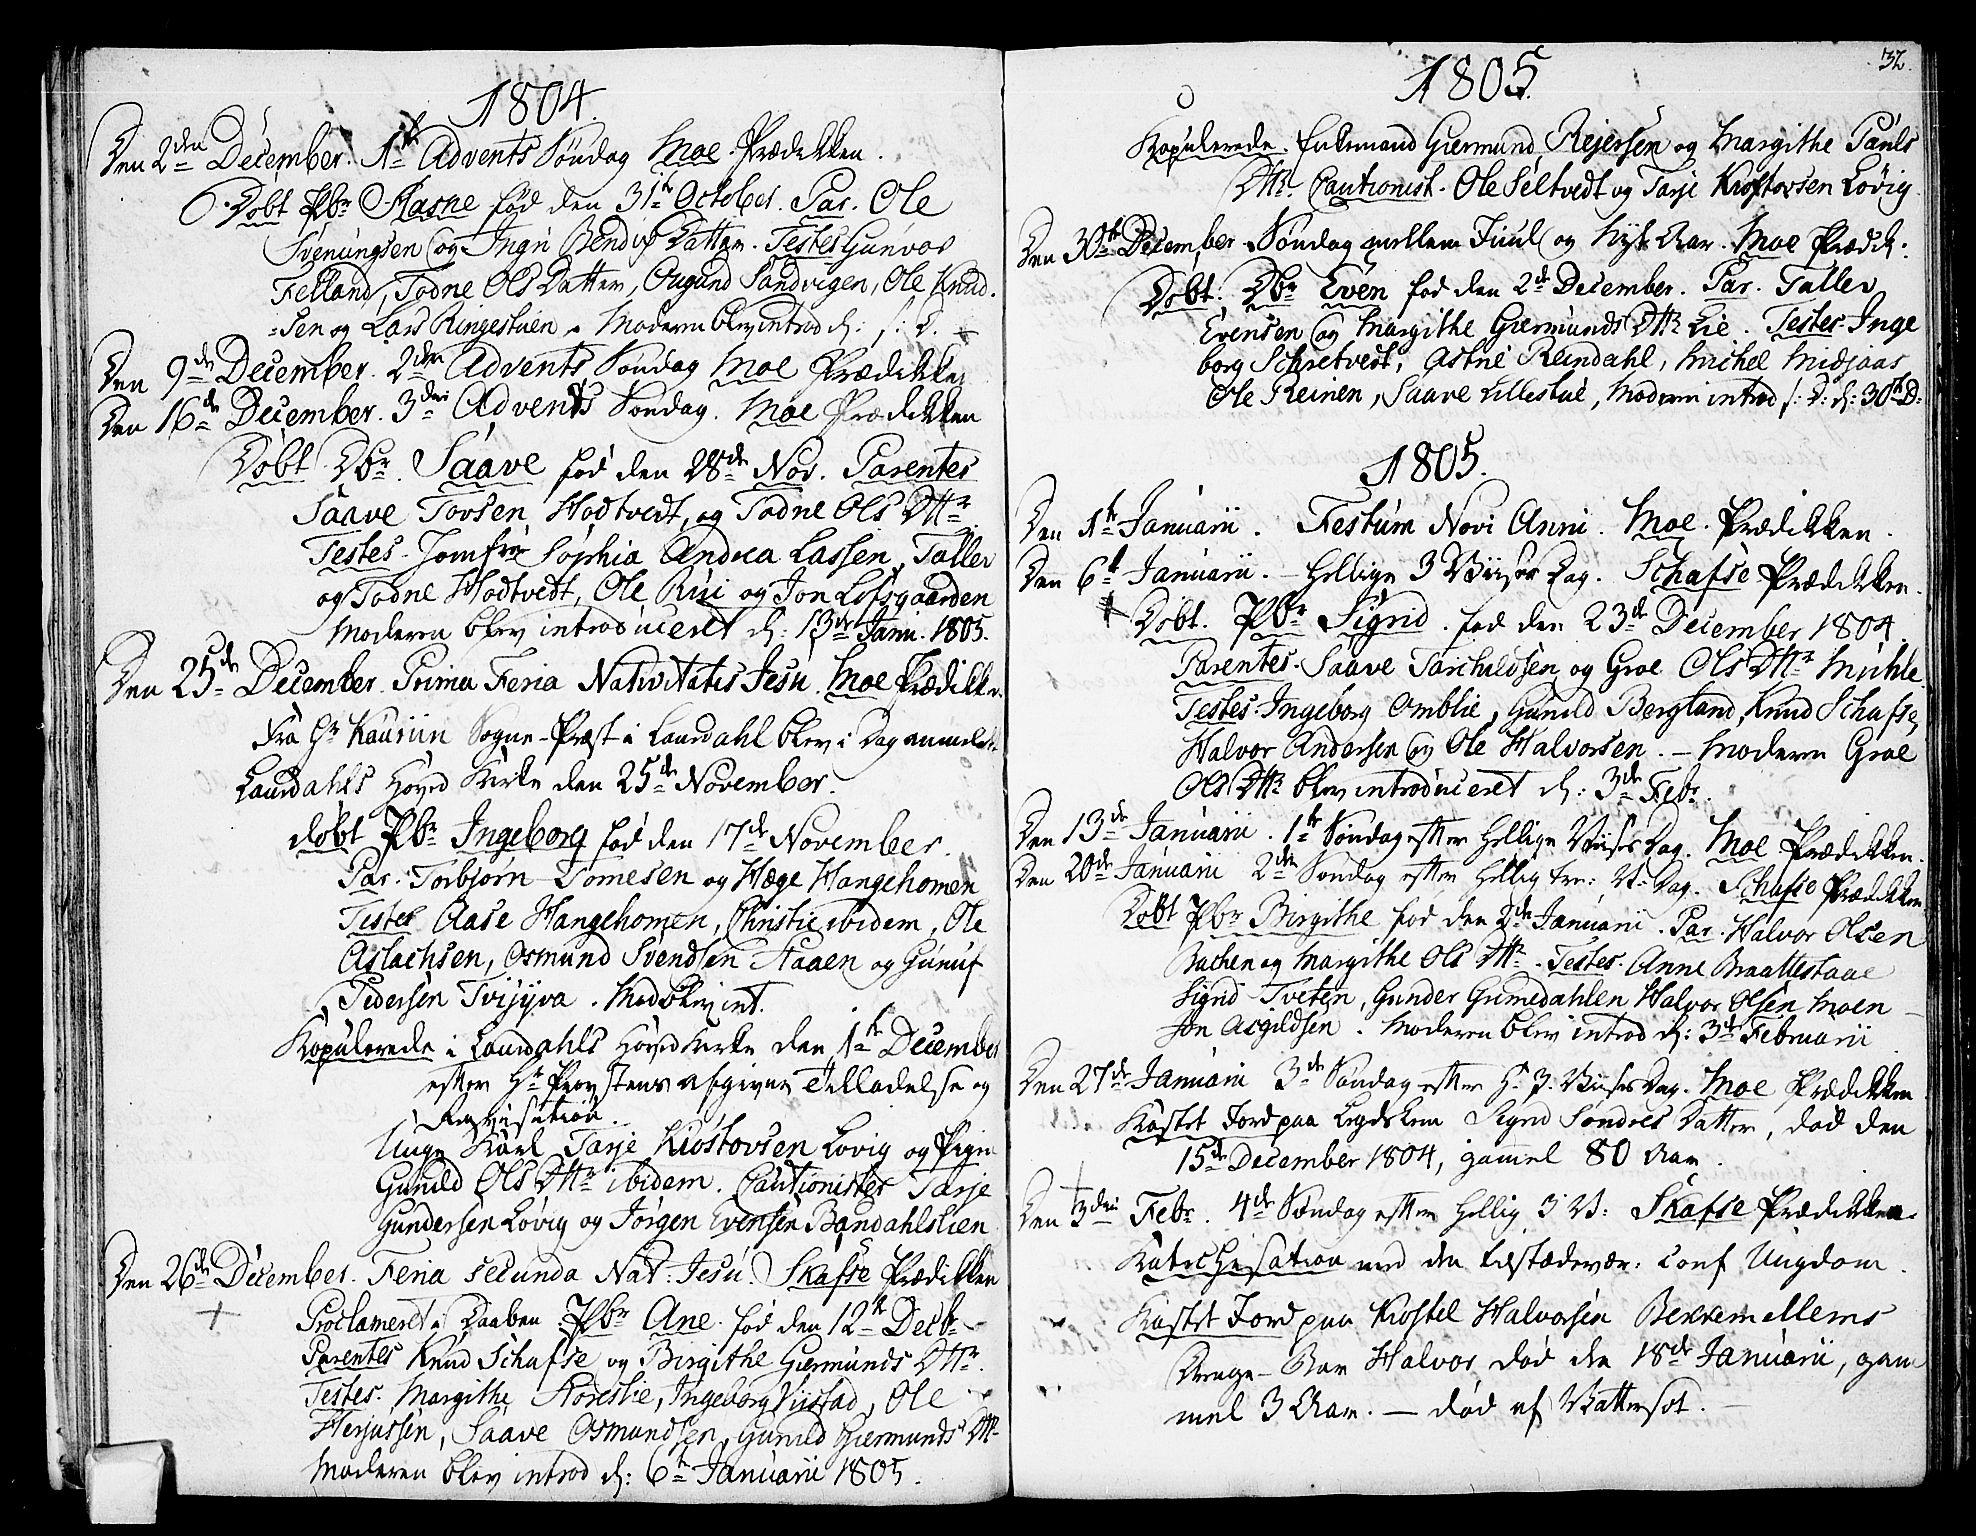 1804.
Den 2den December. 1ste Advents Søndag Moe. Prædikken.
Døbt Pbr Aasne fød den 31te October. Par. Ole
Svenungsen og Ingri Bendix Datter. Testes Gunvor
Felland, Todne Ols Datter, Ougund Sandvigen, Ole Knud-
-sen og Lars Ringestuen. Moderen blev introd d: s: D.
Den 9de December. 2den Advents Søndag Moe Prædikken
Den 16de December. 3die Advents Søndag. Moe Prædikken
Døbt Dbr. Saave fød den 28de Nov. Parentes
Saave Tovsen Hodtvedt, og Todne Ols Dttr
Testes. Jomfrue Sophia Andrea Lassen, Tallev
og Todne Hodtvedt, Ole Rui og Jon Lofsgaarden
Moderen blev introduceret d: 13de Janu. 1805.
Den 25de December. Prima Feria Nativitatis Jesu. Moe Prædikken.
Fra Hr Kauriin Sogne-Præst i Laurdahl blev i Dag anmeldt
Laurdahls Hoved Kirke den 25de November.
døbt Pbr Ingeborg fød den 17de November.
Par. Torbjørn Tomesen og Hæge Hangehomen
Testes Aase Hangehomen, Christie ibidem, Ole
Aslachsen, Osmund Svendsen Staaen og Gunuf
Pedersen Tvijyva. Mod blev int.
Kopulerede i Laurdahls Hoved Kirke den 1te December
efter Hr Provstens afgivne Tilladelse og
Unge Karl Tarje Kiøstovsen Lovig og Pigen
Gunild Ols Dttr ibidem. Cautionister Tarje
Gundersen Lovig og Jørgen Evensen Bandahlslien
Den 26de December. Feria secunda Nat: Jesu. Skafse Prædikken
Proclameret i Daaben Pbr Ane. fød den 12te Decbr
Parentes Knud Schafse og Birgithe Giermunds Dttr.
Testes. Margithe Storeslie, Ingeborg Viistad, Ole
Herjussen, Saave Osmundsen, Gunild Giermunds Dttr
Moderen blev introd d: 6te Januarii 1805.
32.
1805.
Kopulerede. Enkemand Giermund Rejersen og Margithe Pauls
Dttr. Cautionist. Ole Seltvedt og Tarje Kiostovsen Lovig.
Den 30te December Søndag mellem Juul og Nyt Aar. Moe Prædik.
Døbt. Dbr Even fød den 2de December. Par. Tallev
Evensen og Margithe Giermunds Dttr Lie. Testes. Inge
borg Schretvedt, Astrie Reindahl, Michel Midjaas
Ole Reinen, Saave Lillestue, Moderen introd s: D: d: 30te D:
1805.
Den 1te Januarii. Festum Novi Anni. Moe. Prædikken.
Den 6te Januarii. - Hellige 3 Viisers Dag. Schafse Prædikken.
Døbt. Pbr Sigrid. fød den 23de December 1804.
Parentes. Saave Tarchuldsen og Groe Ols Dttr Muhle.
Testes. Ingeborg Omblie, Gunild Bergland, Knud Schafse,
Halvor Andersen og Ole Halvorsen. - Moderen Groe
Ols Dttr blev introduceret d: 3de Febr.
Den 13de Januarii. 1te Søndag efter Hellige Viisers Dag. Moe Prædikken.
Den 20de Januarii 2den Søndag efter Hellig tre: V: Dag. Schafse Prædikken
Døbt Pbr Birgithe fød den 2de Januarii. Par. Halvor Olsen
Bachen og Margithe Ols Dttr. Testes. Anne Braattestaae
Sigrid Tveten, Gunder Grimedahlen Halvor Olsen Moen
Jon Asgildsen. Moderen blev introd d: 3de Februarii
Den 27de Januarii 3de Søndag efter H: 3. Viisers Dag. Moe Prædikken
Kastet Jord paa Lægdslem Sigrid Sondres Datter, død den
15de December 1804, gamel 80 Aar.
Den 3die Febr. 4de Søndag efter Hellig 3 V: Skafse Prædikken.
Katechisation med den tilstædevær: Conf Ungdom.
Kastet Jord paa Kiostel Halvorsen Bekkemellems
Drenge-Barn Halvor død den 18de Januarii, gam
mel 3 Aar. - død af Vattersot.